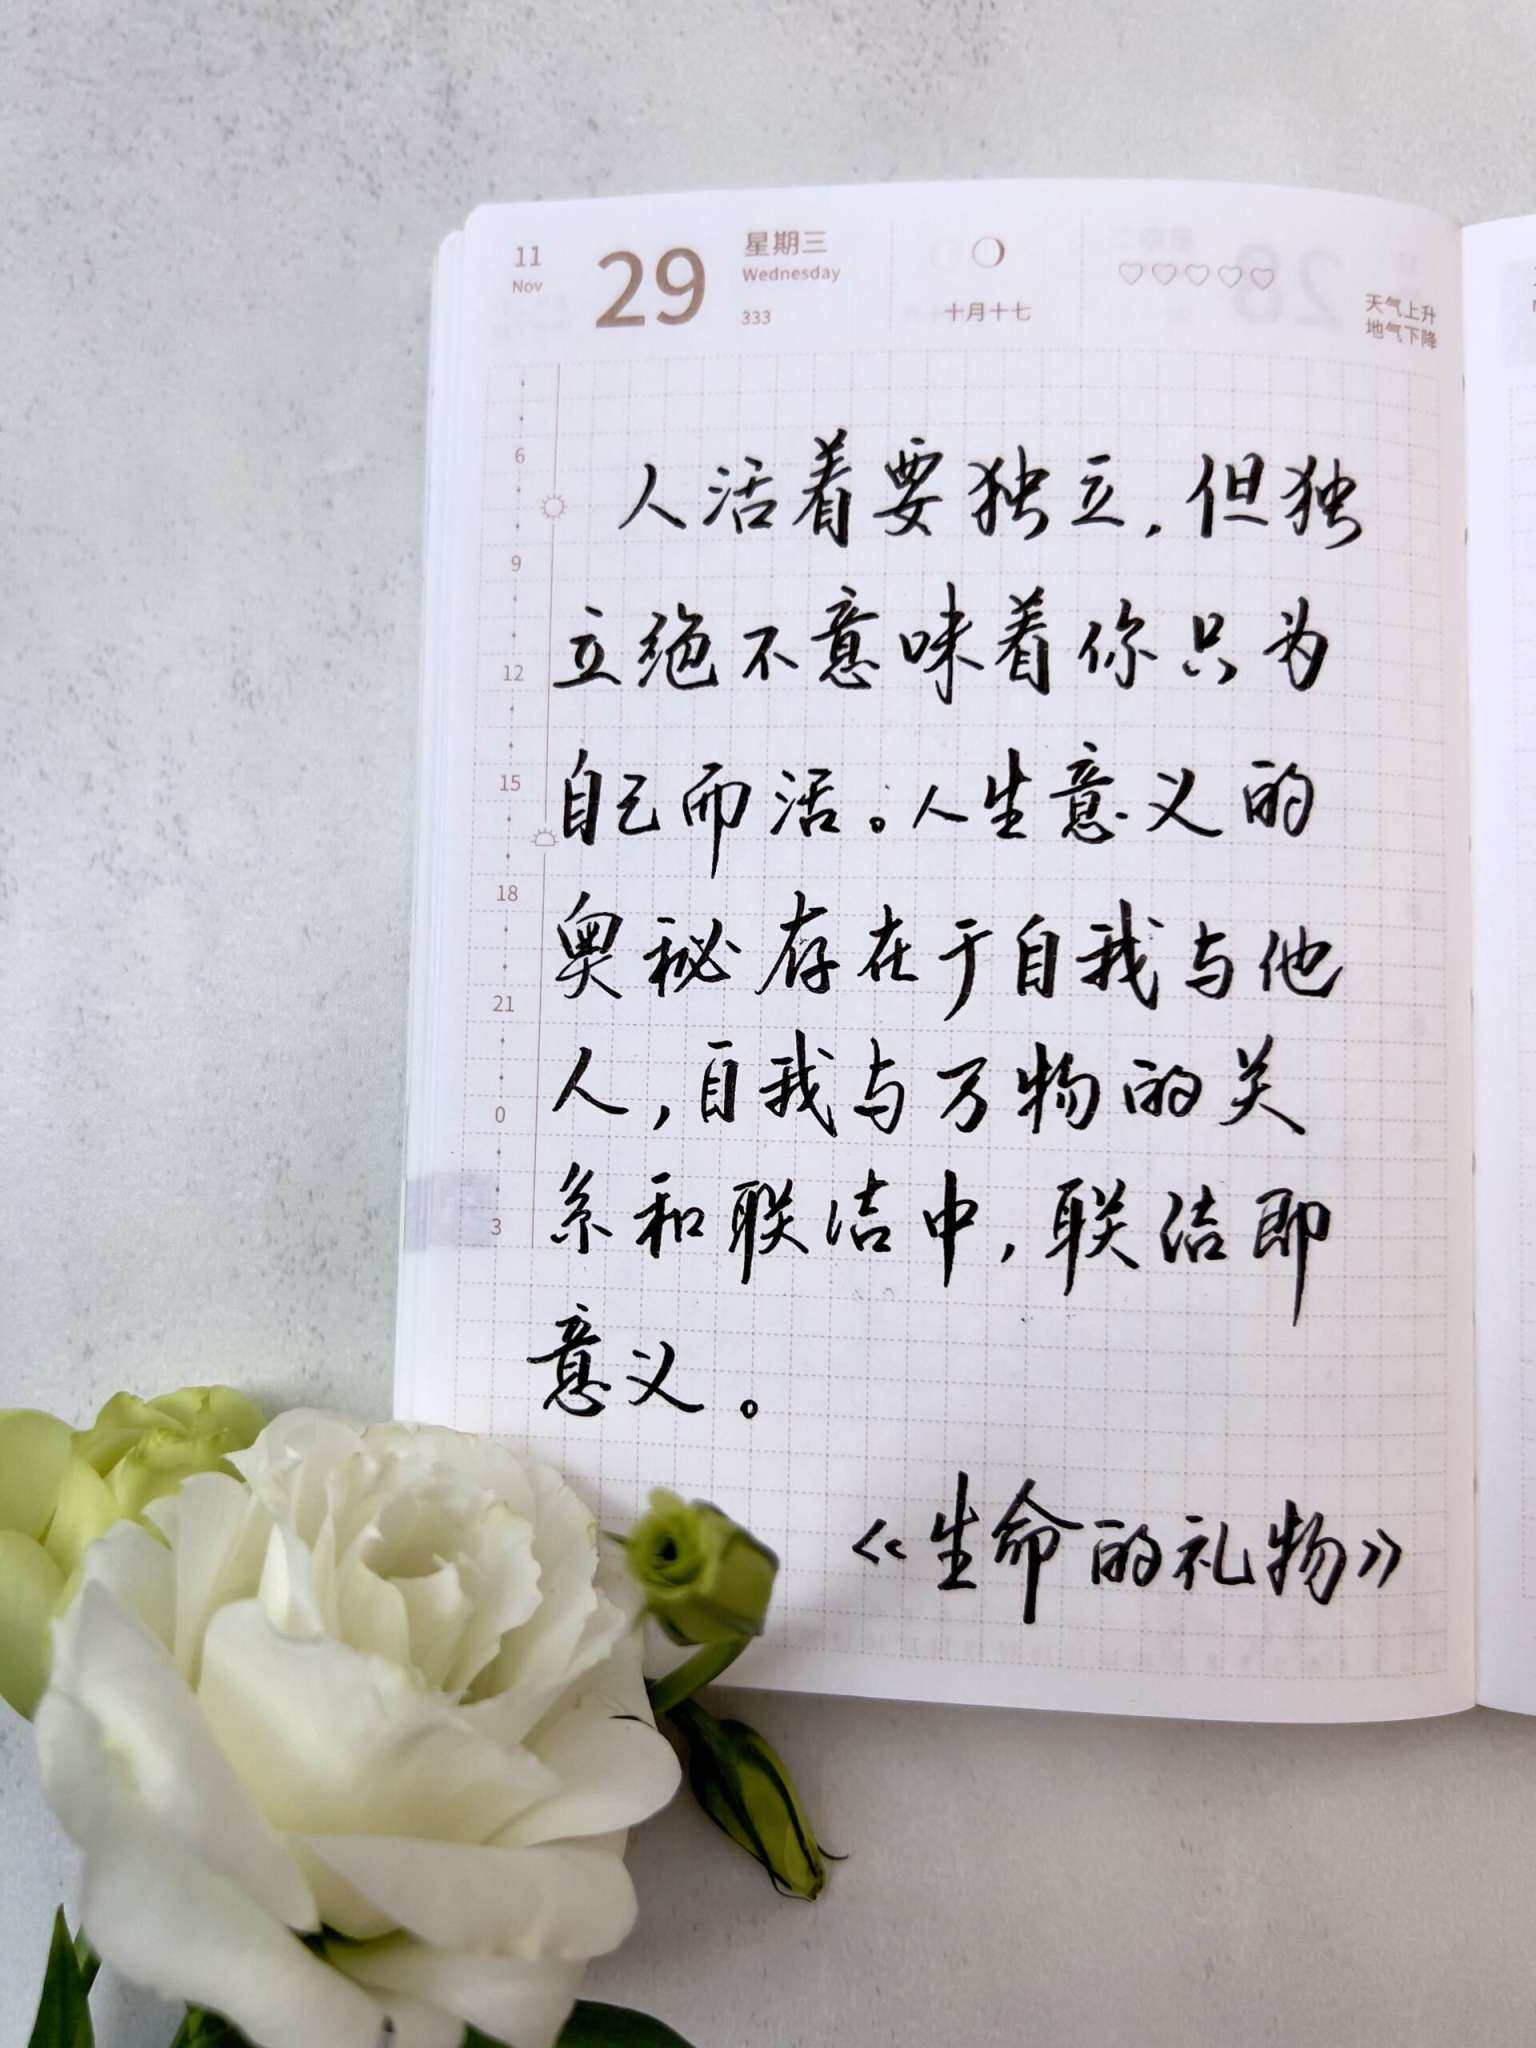 11
Nov
29
星期三
Wednesday
333
十月十七
天气上升
地气下降
6
9
12
15
18
21
0
3
人活着要独立,但独
立绝不意味着你只为
自己而活。人生意义的
奥秘存在于自我与他
人,自我与万物的关
系和联洁中,联洁即
意义。
《生命的礼物》